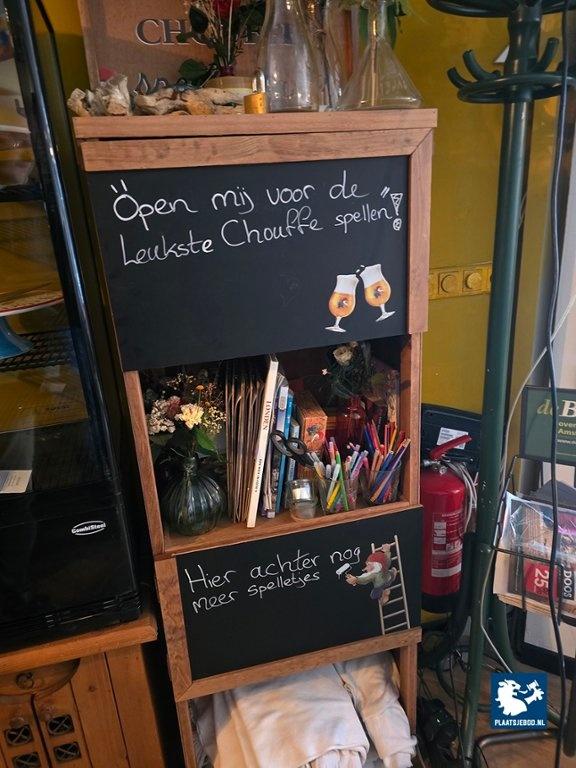 CHOUFFE
Open mij voor de
Leukste Chouffe spellen!
LONDON
Hier achter nog
meer spelletjes
CombiSteel
de B
over
Ams
25
DOOS
PLAATSJEBOD.NL